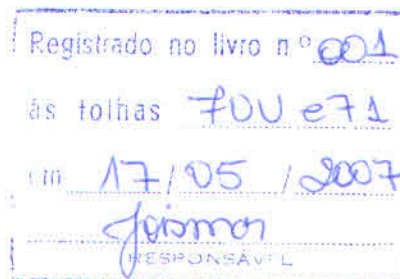 Registrado no livro nº 001
às folhas 70V e 71
em 17/05/2007
RESPONSÁVEL